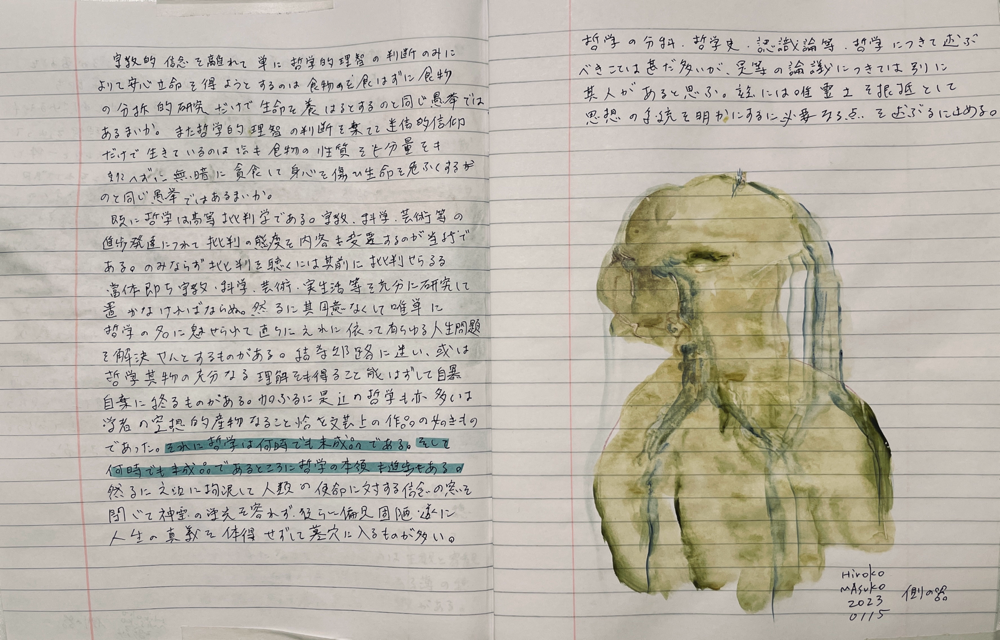 宗教的信念を離れて単に哲学的理智の判断のみに
よりて安心立命を得ようとするのは食物を食はずに食物
の分析的研究だけで生命を養はうとするのと同じ愚挙では
あるまいか。また哲学的理智の判断を棄てて迷信的信仰
だけで生きているのは恰も食物の性質をも分量をも
無暗に貪食して身心を傷ひ生命を危ふくするが
のと同じ愚挙ではあるまいか。
既に哲学は高等批判学である。宗教、科学、芸術等の
進歩発達につれて批判の態度も内容も変遷するのが当然で
ある。のみならず批判を聴くには其前に批判せらるる
当体即ち宗教・科学・芸術・実生活等を充分に研究して
置かなければならぬ。然るに其用意なくして唯単に
哲学の名に魅せられて直ちにそれに依って有らゆる人生問題
を解決せんとするものがある。結若邪路に迷い、或は
哲学其物の充分なる理解をも得ること能はずして自暴
自棄に終るものがある。加ふるに是迄の哲学も亦多くは
学者の空想的産物なること恰も文芸上の作品の如きもの
であった。それに哲学は何時でも未成品である。そして
何時でも未成品であるところに哲学の本領も進歩もある。
然るに之に拘泥して人類の使命に対する信念の窓を
閉じて神霊の流れを容れず狂らに偏見固陋、遂に
人生の真義を体得せずして墓穴に入るものが多い。
哲学の分科、哲学史、認識論等、哲学につきて述ぶ
べきことは甚だ多いが、是等の論議につきては別に
其人があると思ふ。茲には唯霊主を根抵として
思想の系統を明かにするに必要なる点を述ぶるに止める。
Hiroko
mAsuko
2023
0115
側の器